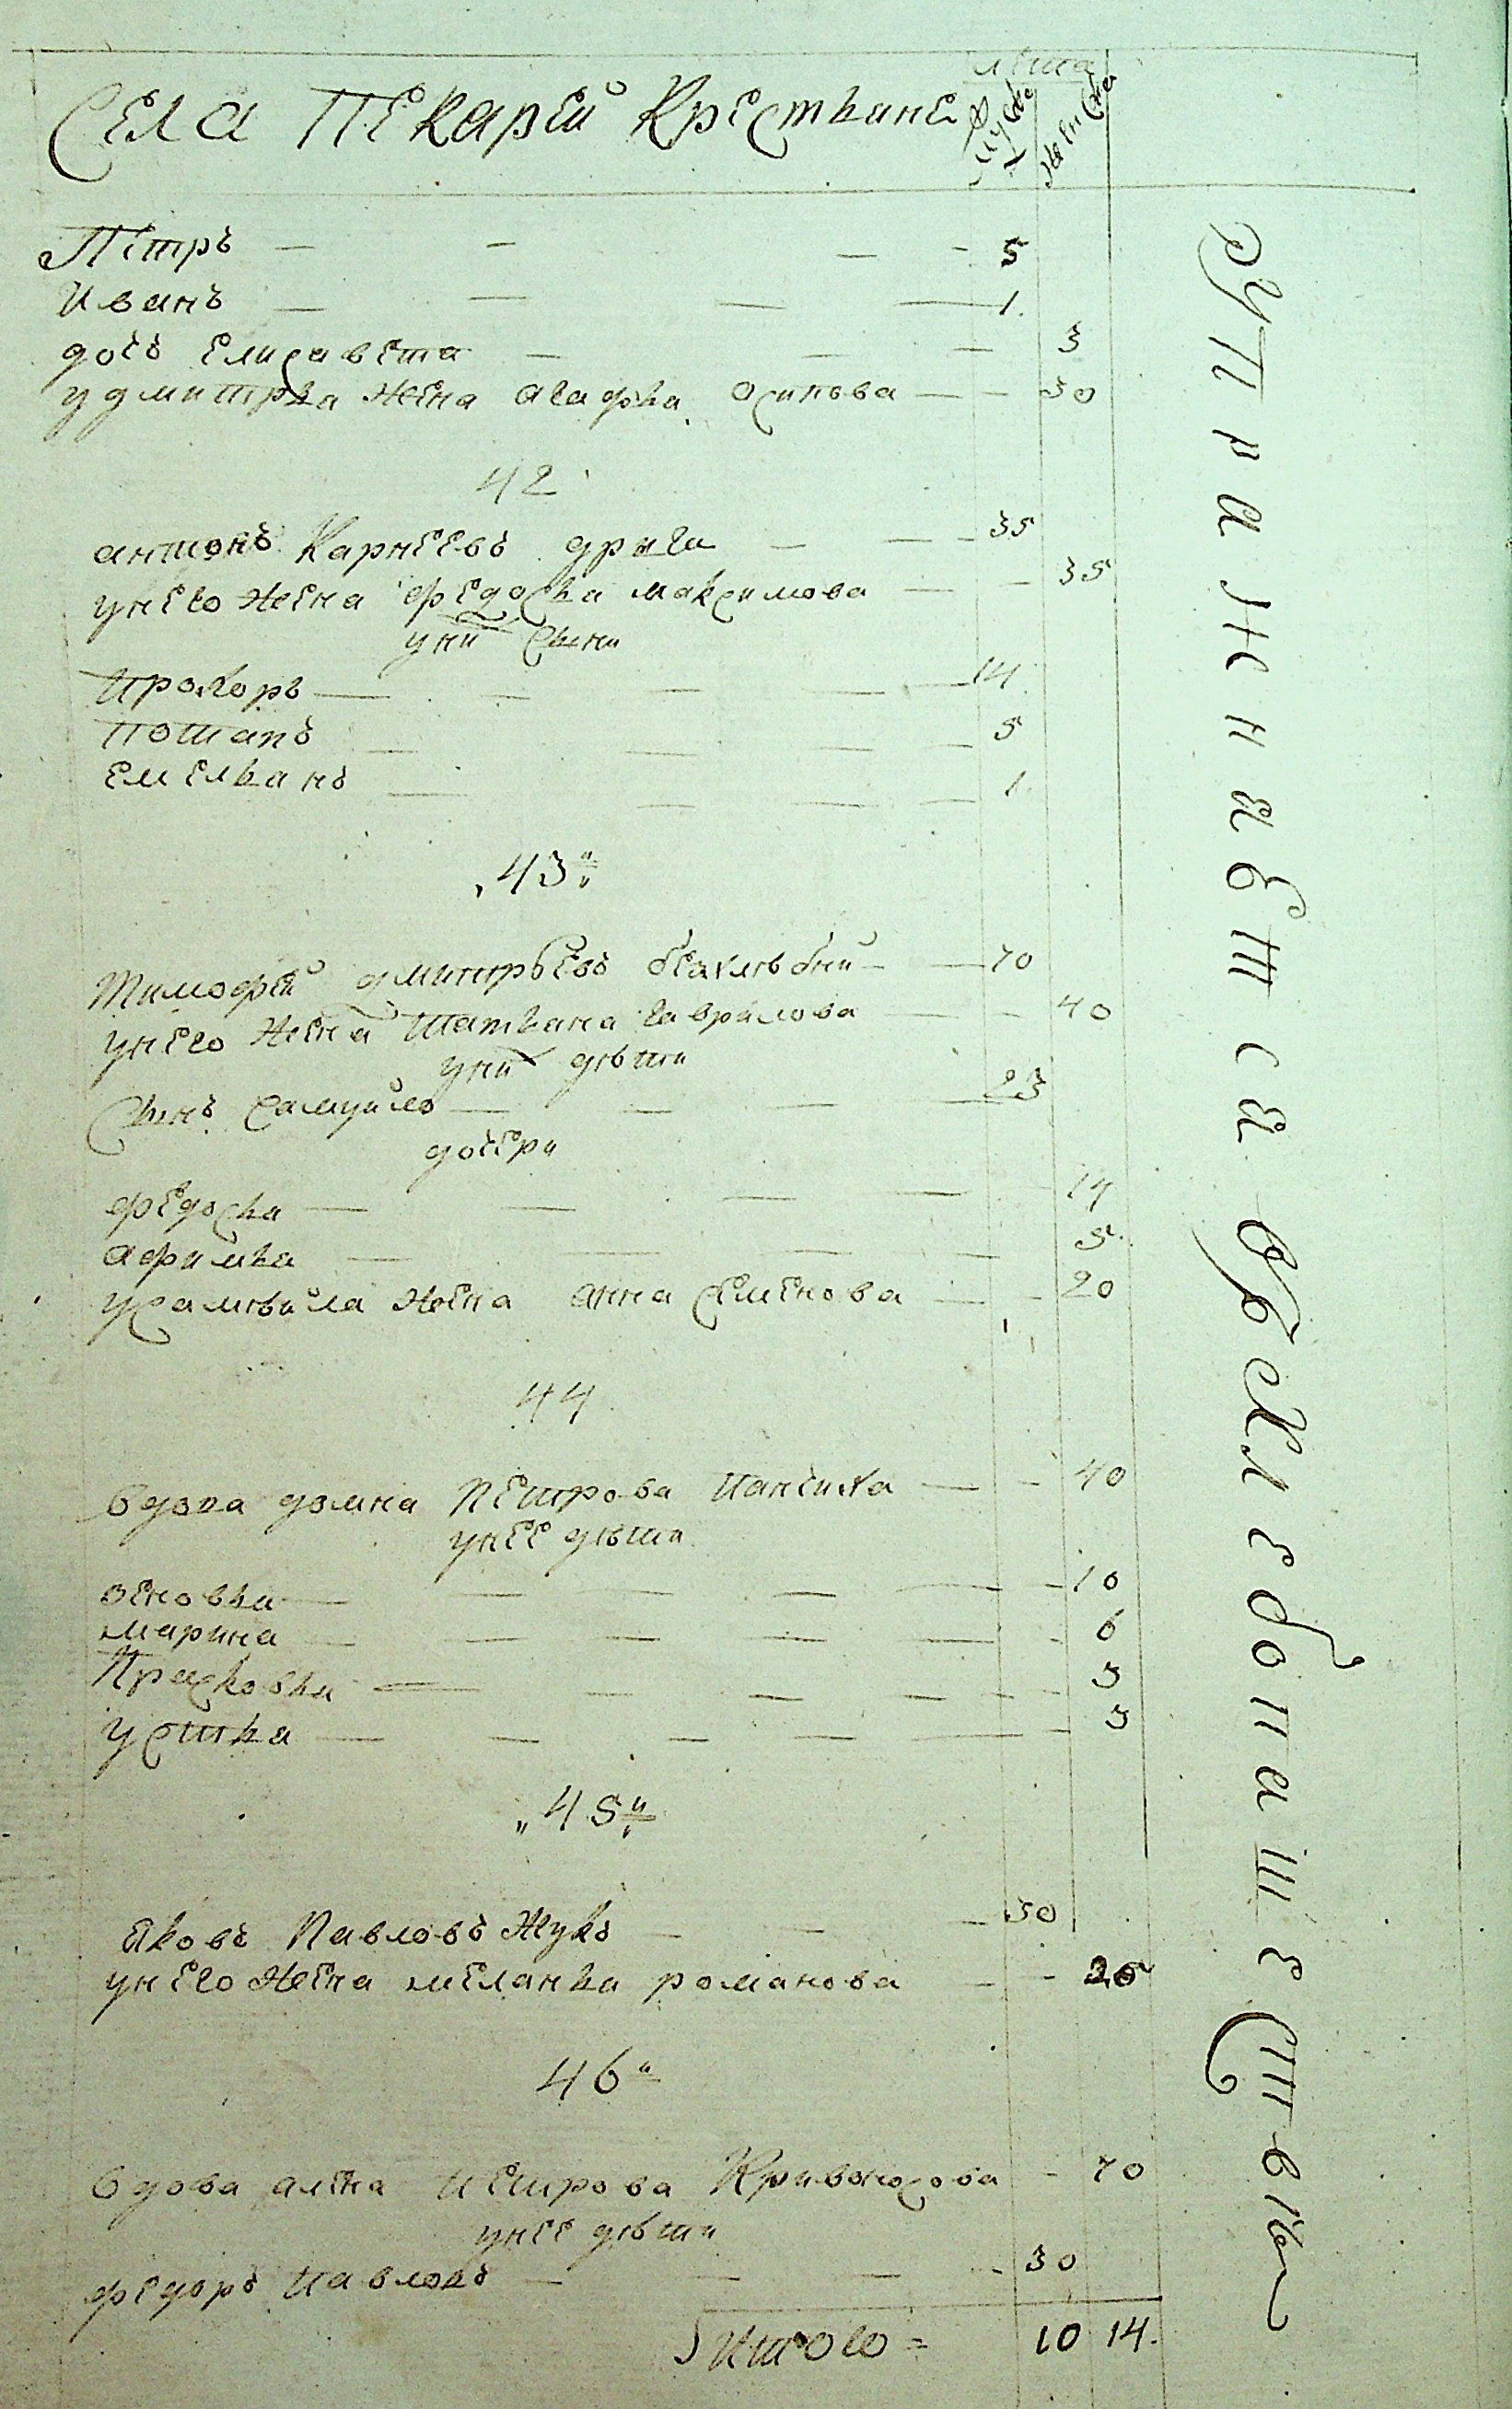 Села Пекарей Крестьяне
лѣта
мужеска
женска
Петръ — — — — 5
Иванъ — — — — 1.
дочь елисавета — — — 3
у дмитрья жена агафья осипова — — 30
42
антонъ Карнеевъ дрыга — — — 35
у него жена федосья максимова — — 35
у них сыни
Прохоръ — — — — 14
Потапъ — — — — 5
емельянъ — — — — 1.
43й
Тимофей дмитрѣевъ безхлѣбный — — 70
у него жена татьяна гаврилова — — 40
у них дѣти
сынъ самуйло — — — — 23
дочери
федосья — — — — 14
афимья — — — — 5.
у самъйла жена анна семенова — — 20
44
вдова домна петрова Панчиха — — 40
у нее дѣти
зеновья — — — — 10
марина — — — — 6
Прасковья — — — — 3
устья — — — — 3
45й
яковъ Павловъ Жукъ — — — 30
у него жена меланья романова — — 25
46й
вдова анна петрова Кривоносова — 70
у нее дѣти
федоръ павловъ — — — 30
итого = 10 14.
упражняется в хлебопашествѣ